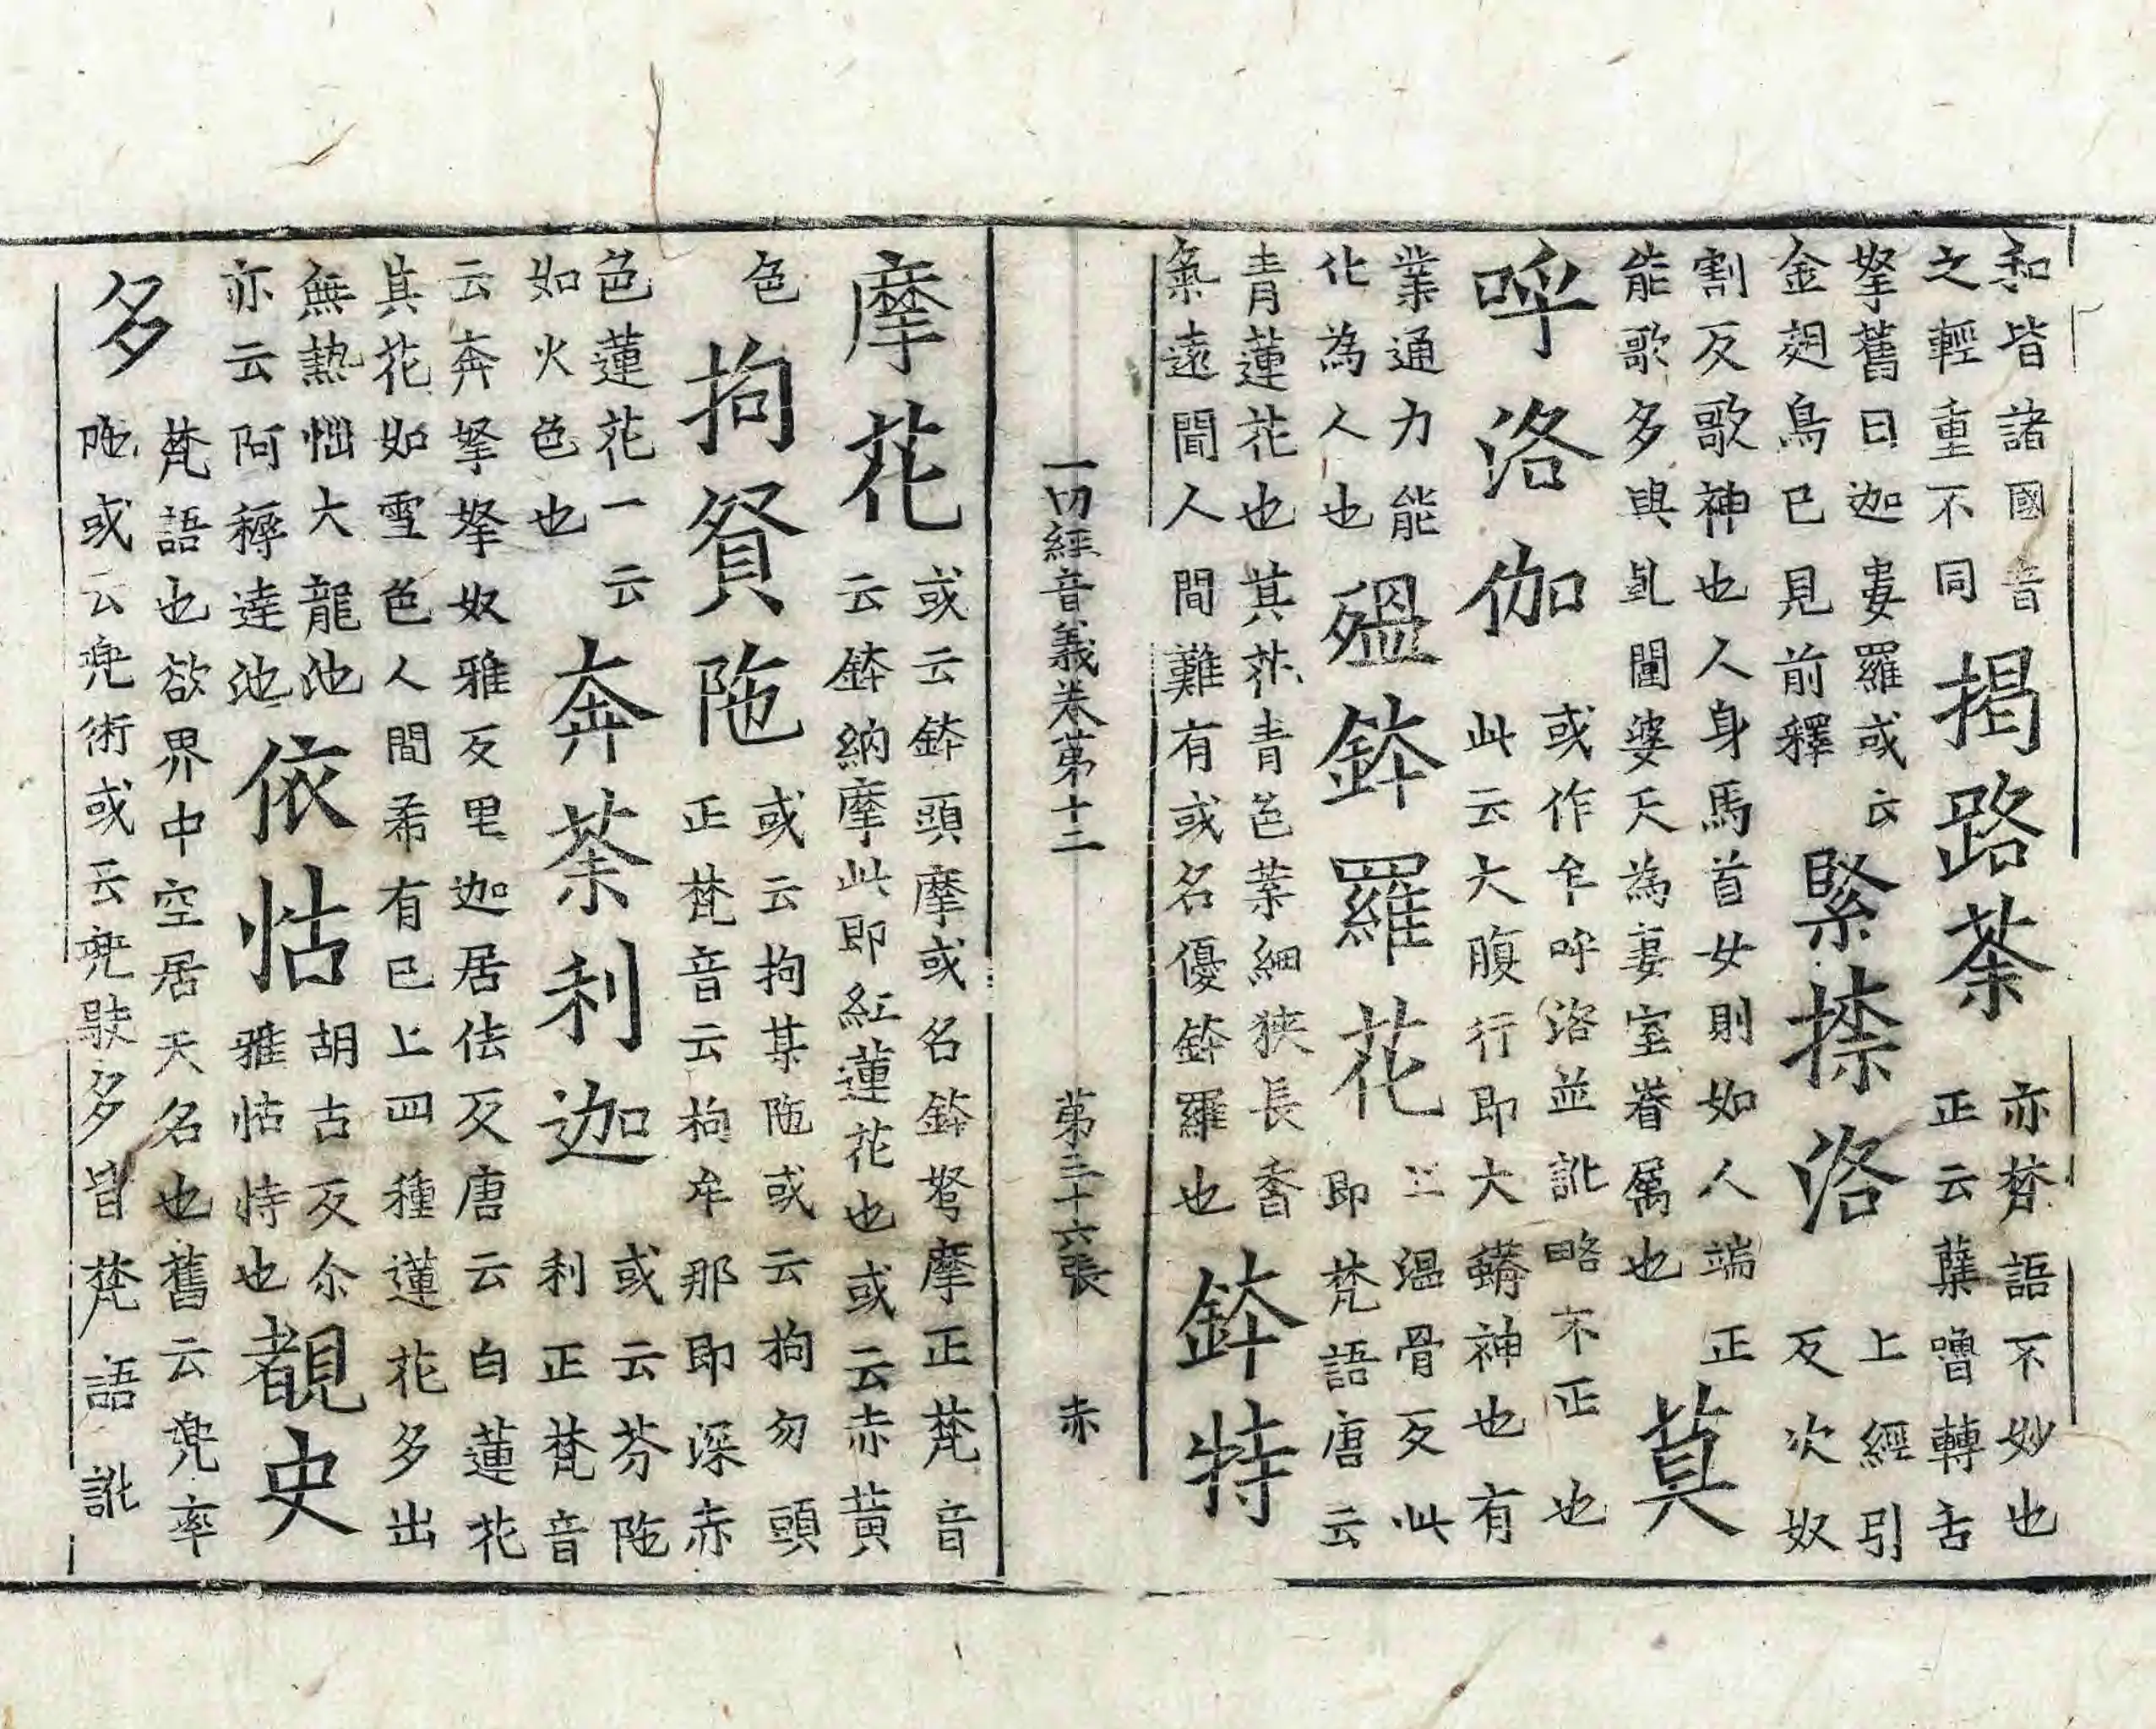 和皆諸國音
之輕重不同
揭路荼
亦梵語不妙也
正云蘖嚕轉舌
拏舊曰迦婁羅或云
金翅鳥已見前釋
緊捺洛
上經引
反次奴
割反歌神也人身馬首女則如人端正
能歌多與乹闥婆天為妻室眷屬也
莫
呼洛伽
或作乍呼洛並訛略不正也
此云大腹行即大蟒神也有
業通力能
化為人也
殟鉢羅花
上溫骨反此
即梵語唐云
青蓮花也其花青色葉細狹長香
氣遠聞人間難有或名優鉢羅也
鉢特
一切經音義卷第十二 第三十六張 赤
摩花
或云鉢頭摩或名鉢弩摩正梵音
云鉢納摩此即紅蓮花也或云赤黃
色
拘貿陁
或云拘某陁或云拘勿頭
正梵音云拘牟那即深赤
色蓮花一云
如火色也
奔荼利迦
或云芬陁
利正梵音
云奔拏拏奴雅反里迦居佉反唐云白蓮花
其花如雪色人間希有已上四種蓮花多出
無熱惱大龍池
亦云阿耨達池
依怙
胡古反尒
雅怙恃也
覩史
多
梵語也欲界中空居天名也舊云兜率
陁或云兜術或云兜駛多皆梵語訛